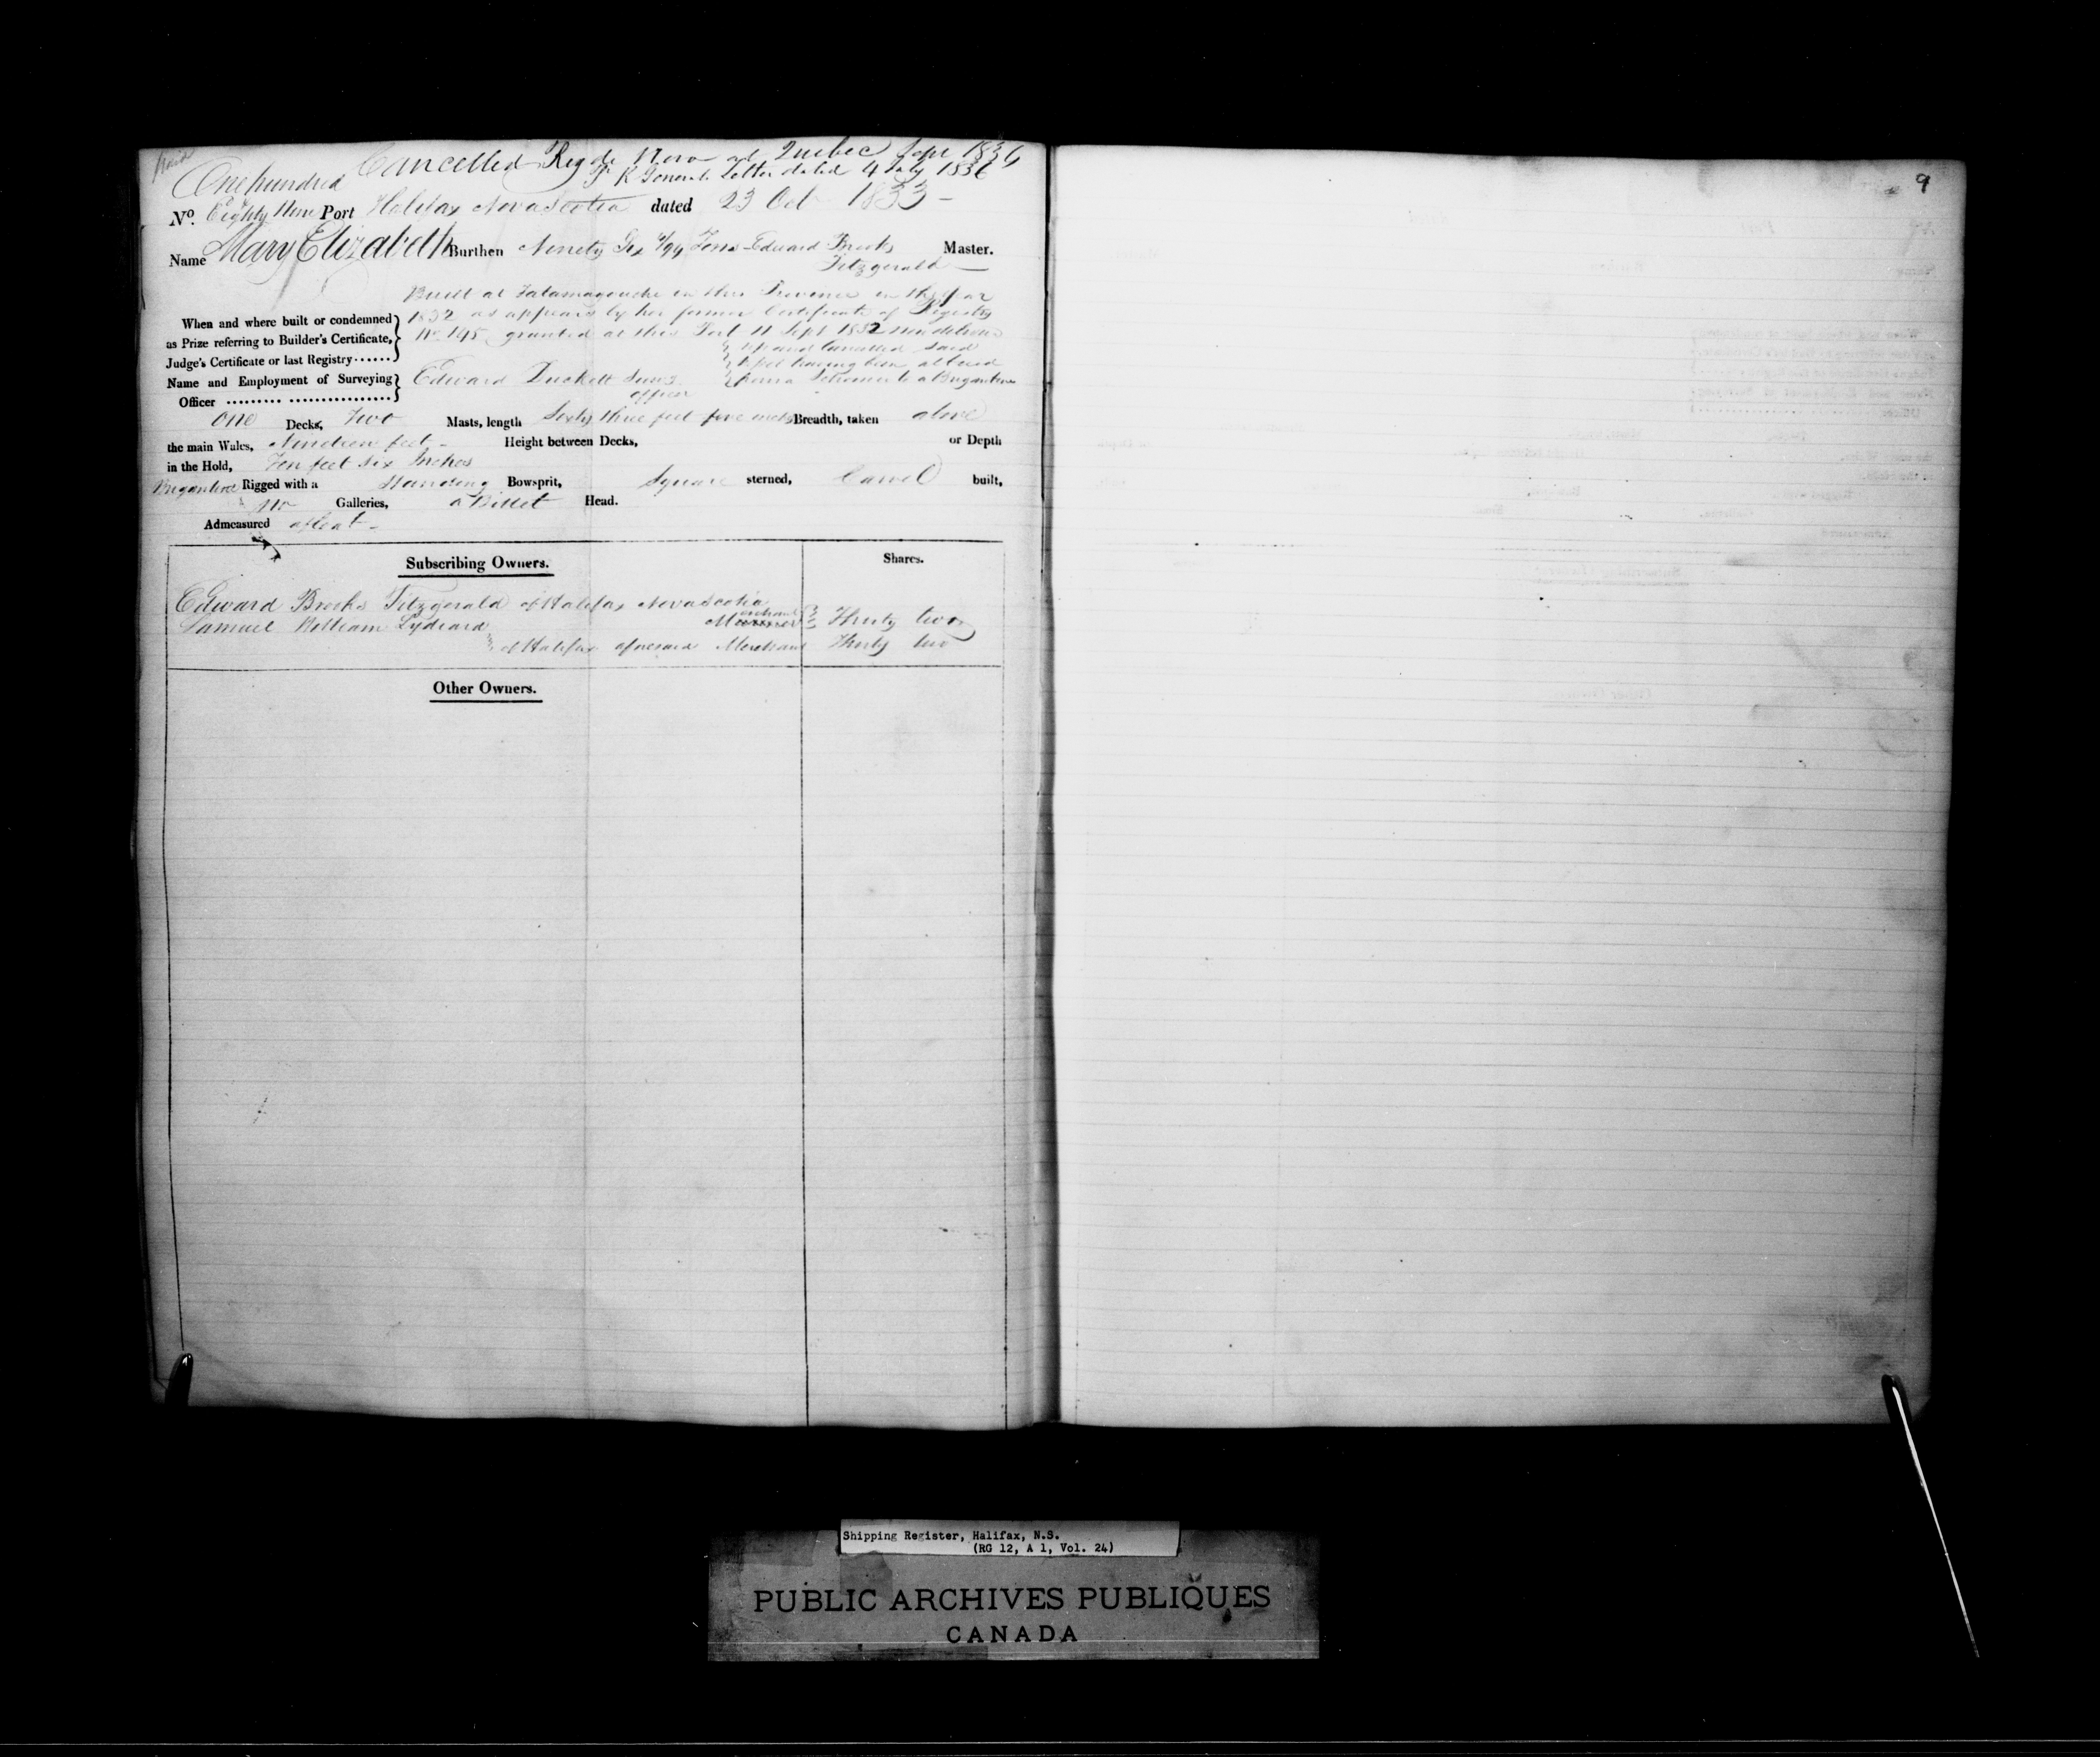 Cancelled Reg de Novo at Quebec Sepr 1836
pr R Generals Letter dated 4 July 1836
One hundred
No. Eighty Nine Port Halifax Nova Scotia dated 23 Oct 1833 -
Name Mary Elizabeth Burthen Ninety Six /94 Tons Edward Brooks Master.
Fitzgerald
Built at Tatamagouche in this Province in the year
When and where built or condemned 1832 as appears by her former Certificate of Registry
as Prize referring to Builder's Certificate, No 145 granted at this Port 11 Sept 1832 now delivered
Judge's Certificate or last Registry...... up and Cancelled said
Vessel having been altered
Name and Employment of Surveying Edward Duckett from a Schooner to a Brigantine
Officer ......... ................ officer
One Decks, Two Masts, length Sixty three feet five inches Breadth, taken above
the main Wales, Nineteen feet - Height between Decks, or Depth
in the Hold, Ten feet six Inches
Brigantine Rigged with a Standing Bowsprit, Square sterned, Carvel built,
No Galleries, a Billet Head.
Admeasured afloat -
Subscribing Owners. Shares.
Edward Brooks Fitzgerald of Halifax Nova Scotia
Samuel William Lydiard Thirty two
of Halifax aforesaid Merchant Thirty two
Other Owners.
9
Shipping Register, Halifax, N.S.
(RG 12, A 1, Vol. 24)
PUBLIC ARCHIVES PUBLIQUES
CANADA